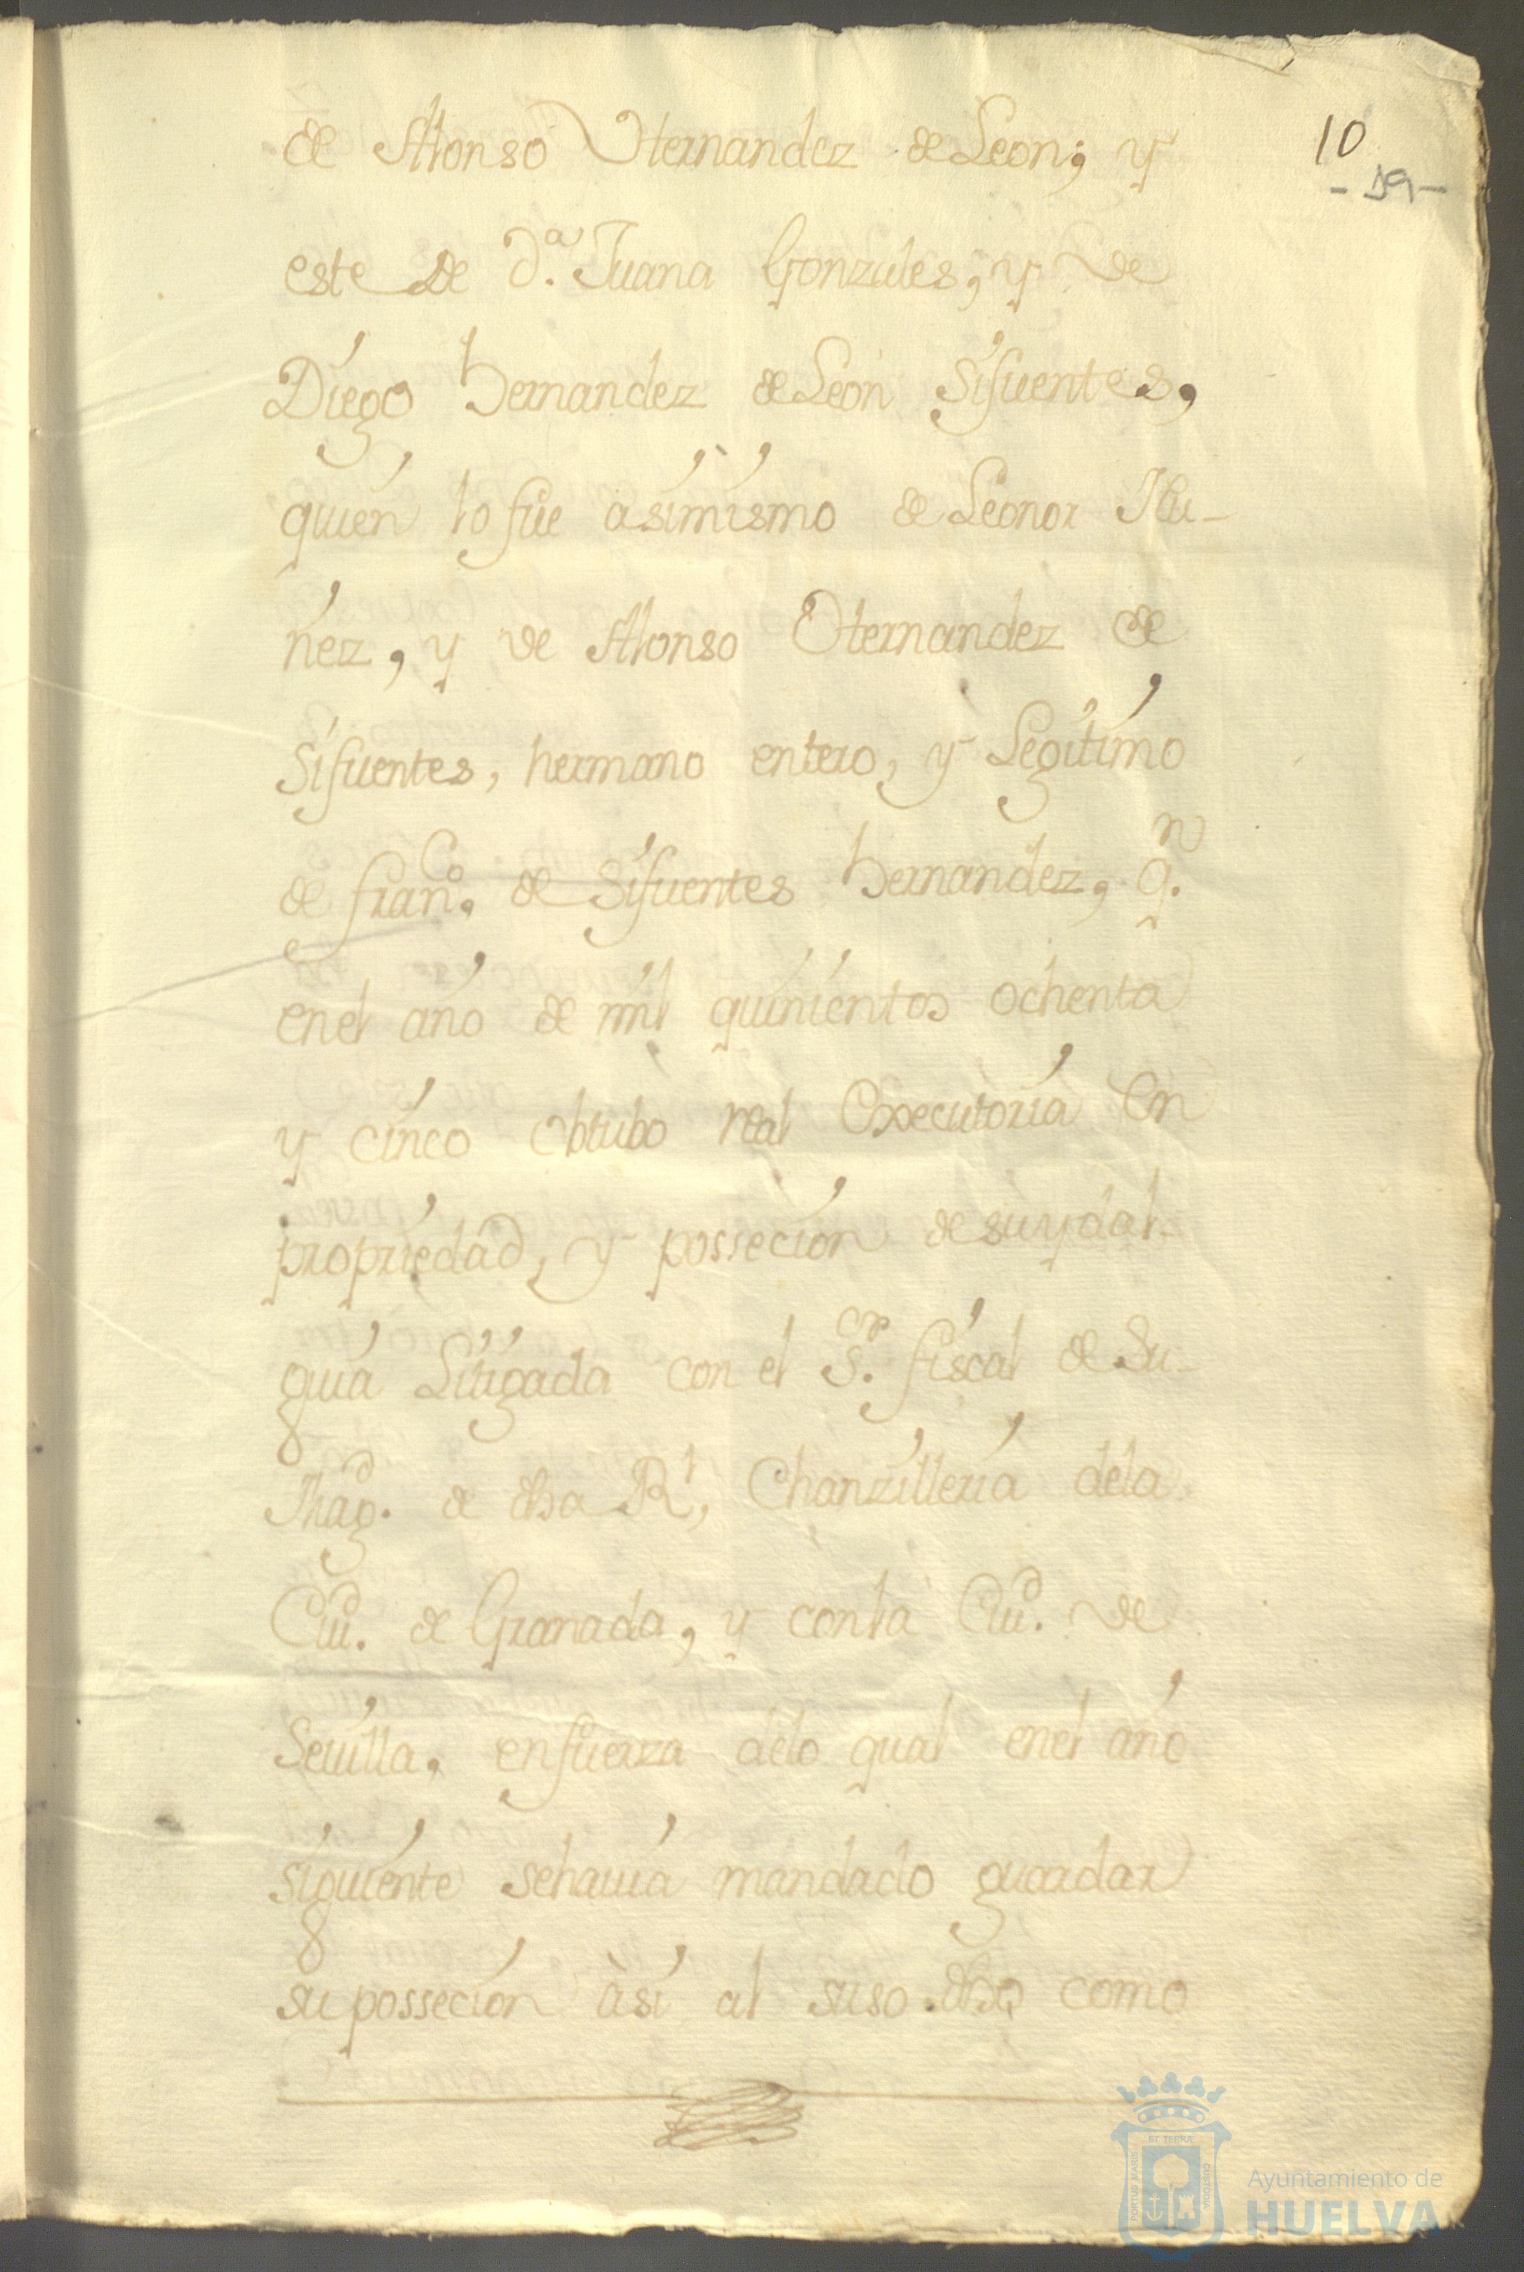 de Alonso Hernandez de Leon; y
10
- 19 -
este de D.ª Juana Gonzales, y de
Diego hernandez de Leon Sifuentes,
quien lo fue asimismo de Leonor Nu-
ñez, y de Alonso Hernandez de
Sifuentes, hermano entero, y Legitimo
de fran.co de Sifuentes hernandez, q.n
en el año de mil quinientos ochenta
y cinco obtubo real Executoria en
propriedad, y possecion de su ydal-
guia Litigada con el S.or fiscal de Su
Mag.d de dha R.l Chanzilleria dela
Ciu.d de Granada, y con la Ciu.d de
Sevilla, en fuerza delo qual en el año
siguiente se havia mandado guardar
su possecion àsi al suso dho como
ET TERRÆ
PORTUS MARIS
CUSTODIA
Ayuntamiento de
HUELVA